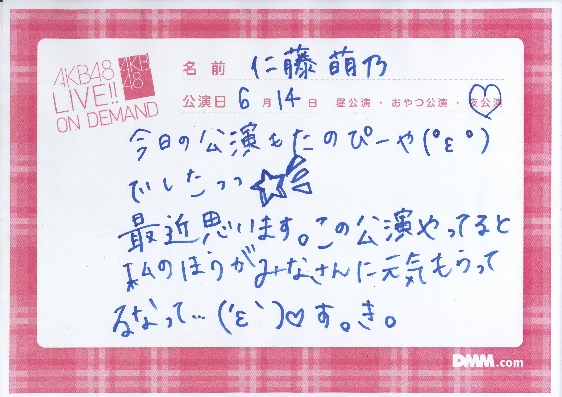 AKB48
LIVE!!
ON DEMAND
AKB
48
名前 仁藤萌乃
公演日 6月14日 昼公演・おやつ公演・夜公演
今日の公演もたのぴーや(°ε°)
でしたっっ☆
最近思います。この公演やってると
私のほうがみなさんに元気もらって
るなって…('ε`)♡す。き。
DMM.com